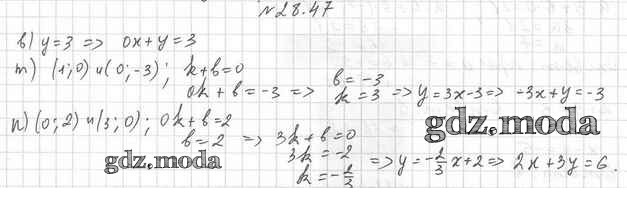 №28.47
в) y=3 => 0x+y=3
m) (1;0) и (0;-3); k+b=0
0k+b=-3 => b=-3
k=3 => y=3x-3 => -3x+y=-3
n) (0;2) и (3;0); 0k+b=2
b=2 => 3k+b=0
3k=-2
k=-2/3 => y=-2/3 x+2 => 2x+3y=6.
gdz.moda
gdz.moda